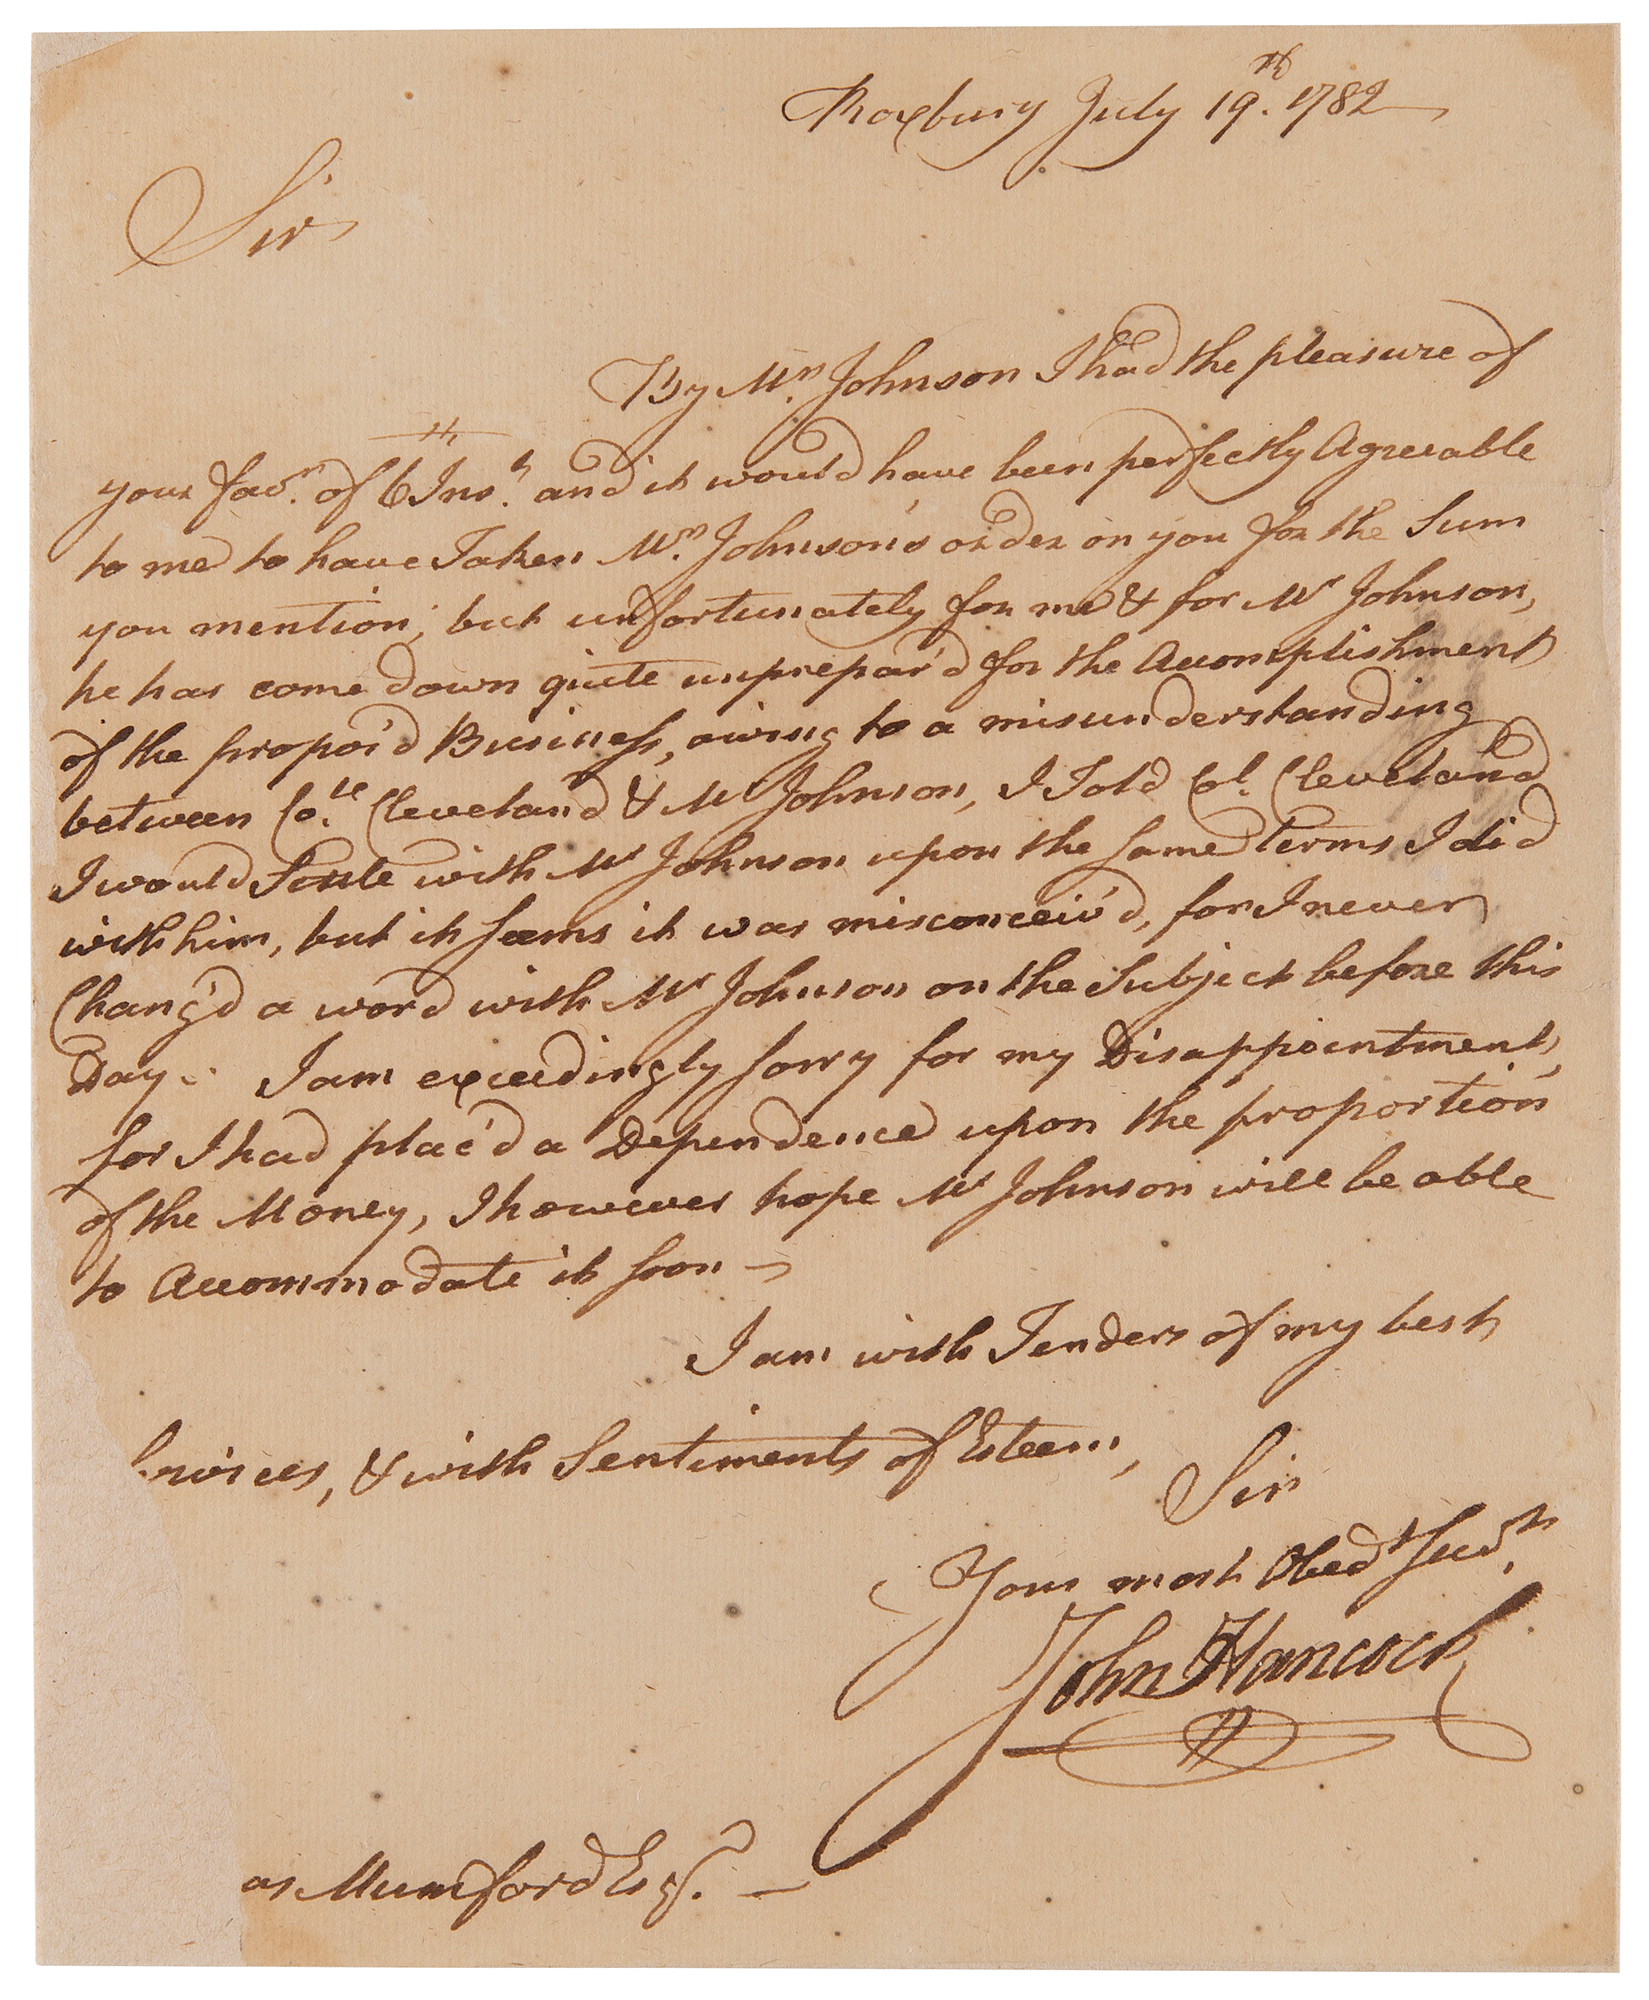 Roxbury July 19th. 1782
Sir
By Mr. Johnson I had the pleasure of
your favr. of 6th Inst. and it would have been perfectly Agreeable
to me to have Taken Mr. Johnson's order on you for the Sum
you mention; but unfortunately for me & for Mr Johnson,
he has come down quite unprepar'd for the Accomplishment
of the propos'd Business, owing to a misunderstanding
between Coll. Cleveland & Mr Johnson, I Told Col. Cleveland
I would Settle with Mr Johnson upon the same Terms I did
with him, but it seems it was misconceiv'd, for I never
Chang'd a word with Mr Johnson on the Subject before this
Day. I am exceedingly sorry for my Disappointment,
for I had plac'd a Dependence upon the proportion
of the Money, I however hope Mr Johnson will be able
to Accommodate it soon
I am with Tenders of my best
Services, & with Sentiments of Esteem,
Sir
Your most Obedt Servt.
John Hancock
as Mumford Esqr.